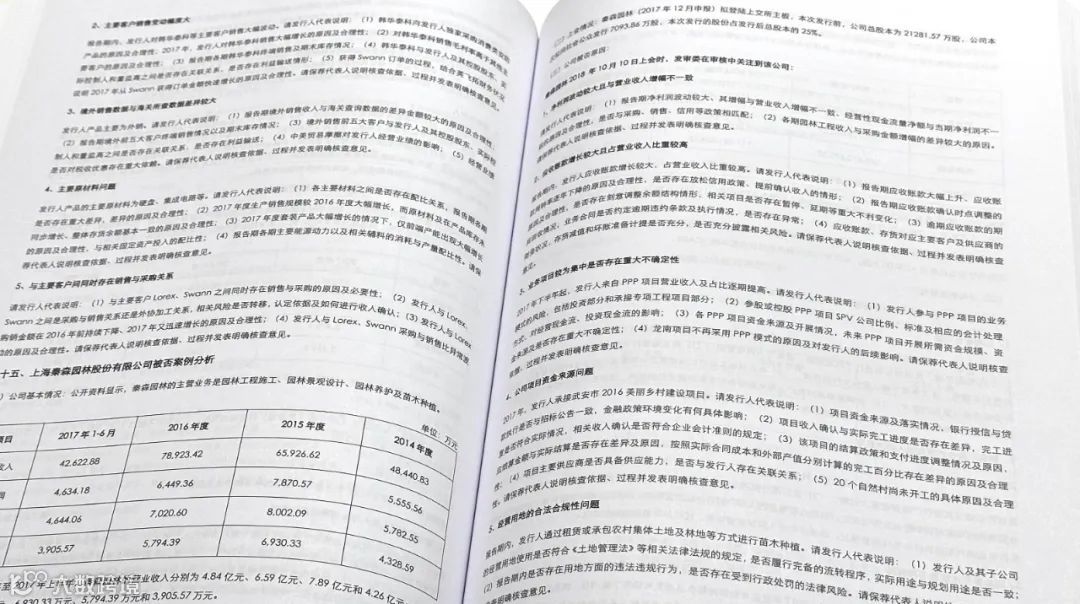 2、主要客户销售变动幅度大
报告期内，发行人对韩华泰科等主要客户销售大幅波动。请发行人代表说明：（1）韩华泰科向发行人独家采购消费类安防
产品的原因及合理性；2017年，发行人对韩华泰科销售大幅增长的原因及合理性；（2）对韩华泰科销售毛利率高于其他主
要客户的原因及合理性；（3）报告期各期韩华泰科终端销售及期末库存情况；（4）韩华泰科与发行人及其控股股东、实
际控制人和董监高之间是否存在关联关系，是否存在利益输送情形；（5）获得Swann订单的过程，结合英飞拓财务状况
说明2017年从Swann获得订单金额快速增长的原因及合理性。请保荐代表人说明核查依据、过程并发表明确核查意见。
3、境外销售数据与海关所查数据差异较大
发行人产品主要为外销。请发行人代表说明：（1）报告期境外销售收入与海关查询数据的差异金额较大的原因及合理性；
（2）报告期境外前五大客户终端销售情况以及期末库存情况；（3）境外销售前五大客户与发行人及其控股股东、实际控
制人和董监高之间是否存在关联关系，是否存在利益输送；（4）中美贸易摩擦对发行人经营业绩的影响；（5）经营业绩
是否对税收优惠存在重大依赖。请保荐代表人说明核查依据、过程并发表明确核查意见。
4、主要原材料问题
发行人产品的主要原材料为硬盘、集成电路等。请发行人代表说明：（1）各主要材料之间是否存在配比关系，报告期各期
是否存在重大差异，差异的原因及合理性；（2）2017年度生产销售规模较2016年度大幅增长，而原材料及在产品库存未
同步增长、整体存货余额基本一致的原因及合理性；（3）2017年度套装产品大幅增长的情况下，仅前端产能出现大幅增长
的原因及合理性，与相关固定资产投入的配比性；（4）报告期各期主要能源动力以及相关辅料的消耗与产量配比性。请保
荐代表人说明核查依据、过程并发表明确核查意见。
5、与主要客户间同时存在销售与采购关系
请发行人代表说明：（1）与主要客户Lorex、Swann之间同时存在销售与采购的原因及必要性；（2）发行人与Lorex、
Swann之间是采购与销售关系还是外协加工关系，相关风险是否转移，认定依据及如何进行收入确认；（3）发行人与Lorex
购销金额在2016年前持续下降、2017年又迅速增长的原因及合理性；（4）发行人与Lorex、Swann采购与销售比异常波
动的原因及合理性。请保荐代表人说明核查依据、过程并发表明确核查意见。
十五、上海秦森园林股份有限公司被否案例分析
）公司基本情况：公开资料显示，秦森园林的主营业务是园林工程施工、园林景观设计、园林养护及苗木种植。
单位：万元
项目 2017年1-6月 2016年度 2015年度 2014年度
收入 42,622.88 78,923.42 65,926.62 48,440.83
4,634.18 6,449.36 7,870.57 5,555.56
4,644.06 7,020.60 8,002.09 5,782.55
3,905.57 5,794.39 6,930.33 4,328.59
营业收入分别为4.84亿元、6.59亿元、7.89亿元和4.26亿元
6,930.33万元、5,794.39万元和3,905.57万元。
上会情况：秦森园林（2017年12月申报）拟登陆上交所主板，本次发行前，公司总股本为21281.57万股，公司本
次拟向社会公众发行7093.86万股，本次发行的股份占发行后总股本的25%。
公司被否原因：
秦森园林2018年10月10日上会时，发审委在审核中关注到该公司：
1、净利润波动较大且与营业收入增幅不一致
请发行人代表说明：（1）报告期净利润波动较大、其增幅与营业收入增幅不一致、经营性现金流量净额与当期净利润不一
致的原因及合理性，是否与采购、销售、信用等政策相匹配；（2）各期园林工程收入与采购金额增幅的差异较大的原因。
请保荐代表人说明核查依据、过程并发表明确核查意见。
2、应收账款增长较大且占营业收入比重较高
报告期内，发行人应收账款增长较大，占营业收入比重较高。请发行人代表说明：（1）报告期应收账款大幅上升、应收账
款周转率逐年下降的原因及合理性，是否存在放松信用政策、提前确认收入的情形；（2）报告期应收账款确认时点调整的
原因及合理性，是否存在刻意调整余额结构情形，相关项目是否存在暂停、延期等重大不利变化；（3）逾期应收账款的期
后回收情况，业务合同是否约定逾期违约条款及执行情况，是否存在异常；（4）应收账款、存货对应主要客户及供应商的
财务状况，存货减值和坏账准备计提是否充分，是否充分披露相关风险。请保荐代表人说明核查依据、过程并发表明确核查
意见。
3、业务项目较为集中是否存在重大不确定性
2017年下半年起，发行人来自PPP项目营业收入及占比逐期提高。请发行人代表说明：（1）发行人参与PPP项目的业务
模式的风险，包括投资部分和承接专项工程项目部分；（2）参股或控股PPP项目SPV公司比例、标准及相应的会计处理
方式，对经营现金流、投资现金流的影响；（3）各PPP项目资金来源及开展情况，未来PPP项目开展所需资金规模、资
金来源及是否存在重大不确定性；（4）龙南项目不再采用PPP模式的原因及对发行人的后续影响。请保荐代表人说明核查
依据、过程并发表明确核查意见。
4、公司项目资金来源问题
2017年，发行人承接武安市2016美丽乡村建设项目。请发行人代表说明：（1）项目资金来源及落实情况，银行授信与贷
款执行是否与招标公告一致，金融政策环境变化有何具体影响；（2）项目收入确认与实际完工进度是否存在差异，完工进
度是否符合实际情况，相关收入确认是否符合企业会计准则的规定；（3）该项目的结算政策和支付进度调整情况及原因，
应结算金额与实际结算是否存在差异及原因，按照实际合同成本和外部产值分别计算的完工百分比存在差异的原因及合理
性；（4）项目主要供应商是否具备供应能力，是否与发行人存在关联关系；（5）20个自然村尚未开工的具体原因及合理
性。请保荐代表人说明核查依据、过程并发表明确核查意见。
5、经营用地的合法合规性问题
报告期内，发行人通过租赁或承包农村集体土地及林地等方式进行苗木种植。请发行人代表说明：（1）发行人及其子公司
的经营用地使用是否符合《土地管理法》等相关法律法规的规定，是否履行完备的流转程序，实际用途与规划用途是否一致；
（2）报告期内是否存在用地方面的违法违规行为，是否存在受到行政处罚的法律风险。请保荐代表人说明
大数跨境